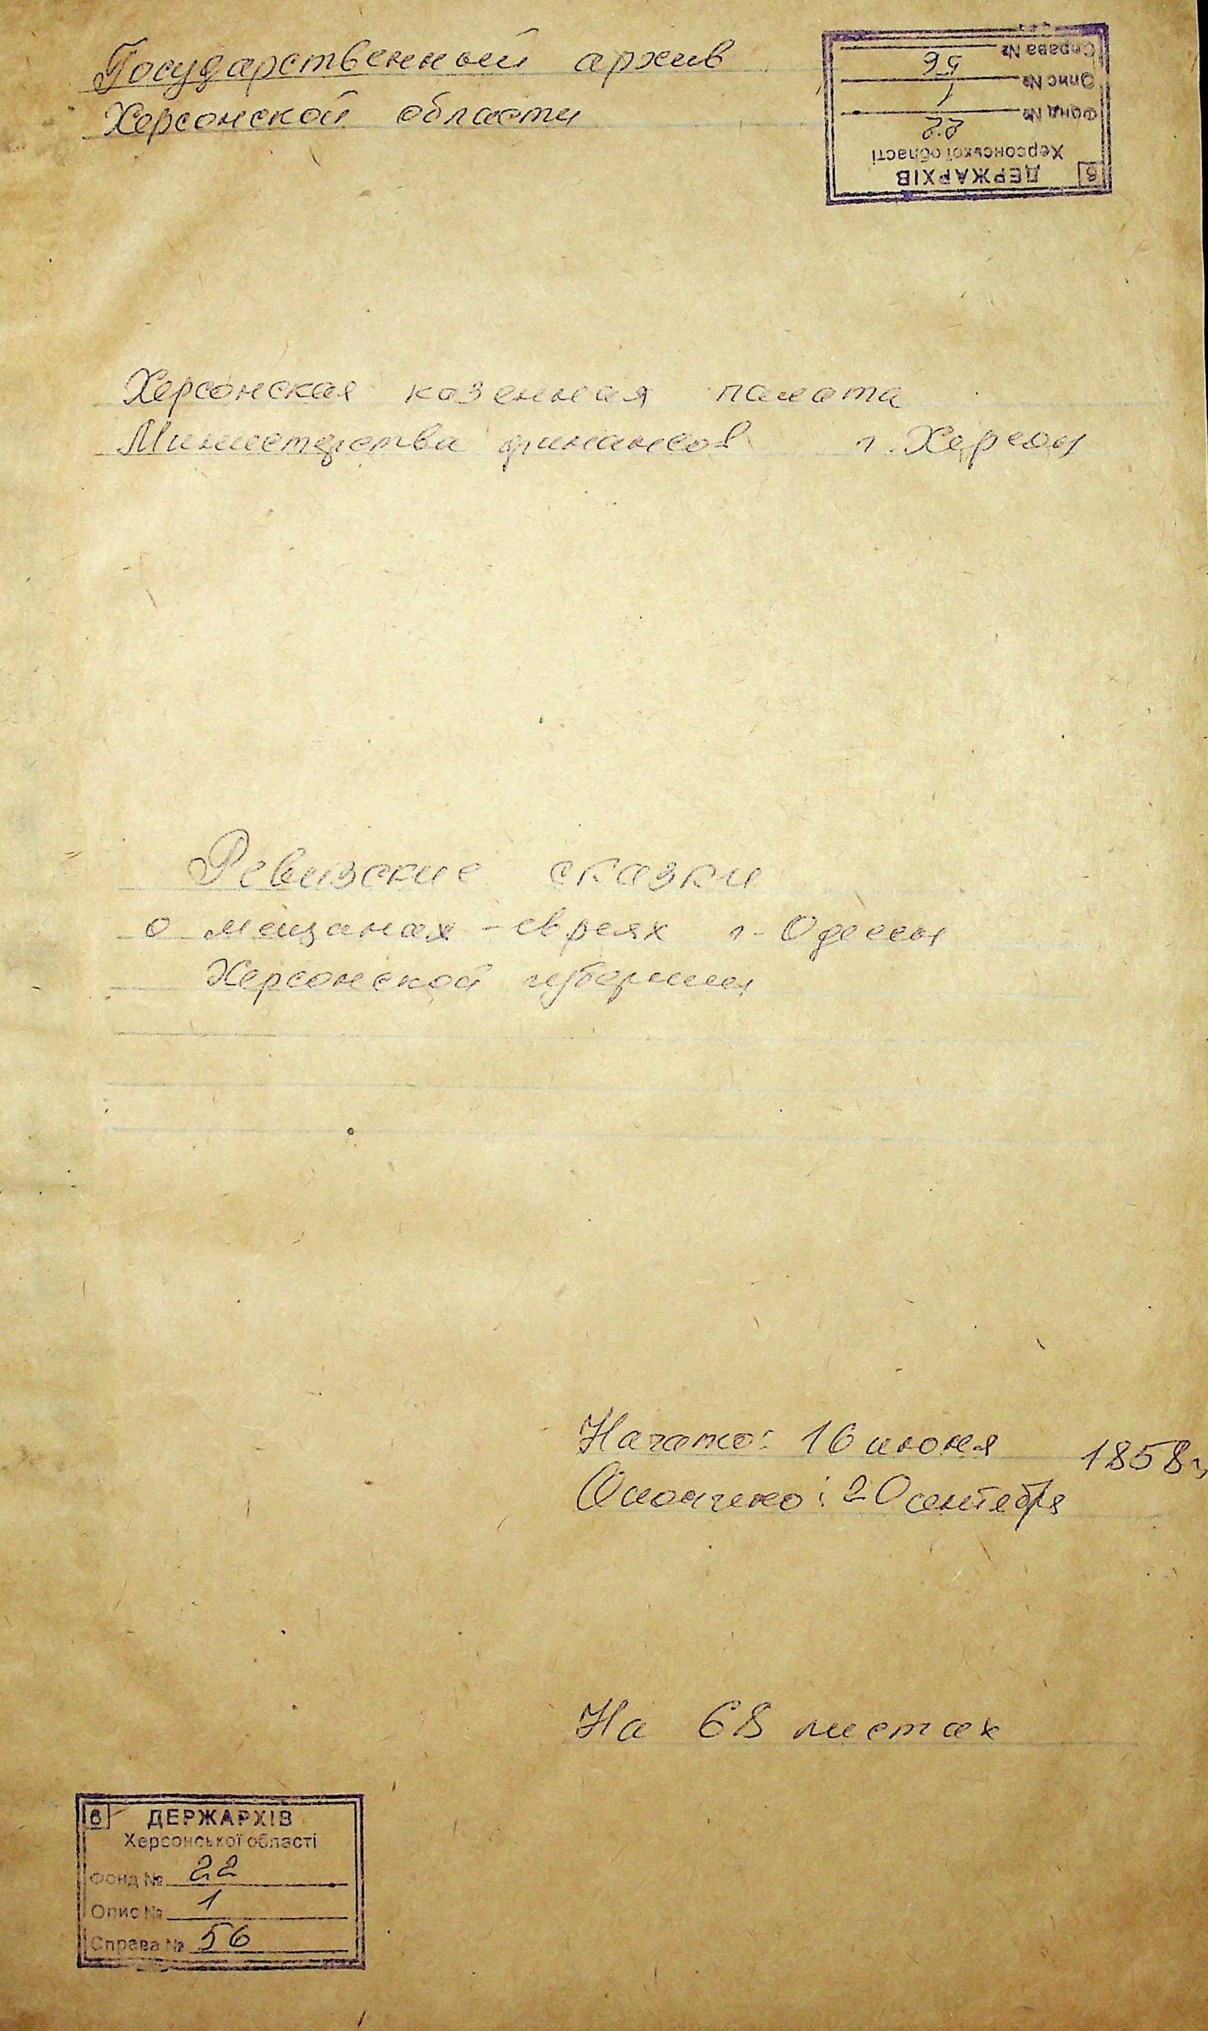 Государственный архив
Херсонской области
6 ДЕРЖАРХІВ
Херсонської області
Фонд № 22
Опис № 1
Справа № 56
Херсонская казенная палата
Министерства финансов г. Херсон
Ревизские сказки
о мещанах-евреях г. Одессы
Херсонской губернии
Начато: 16 июня 1858 г.
Окончено: 20 сентября
На 68 листах
6 ДЕРЖАРХІВ
Херсонської області
Фонд № 22
Опис № 1
Справа № 56